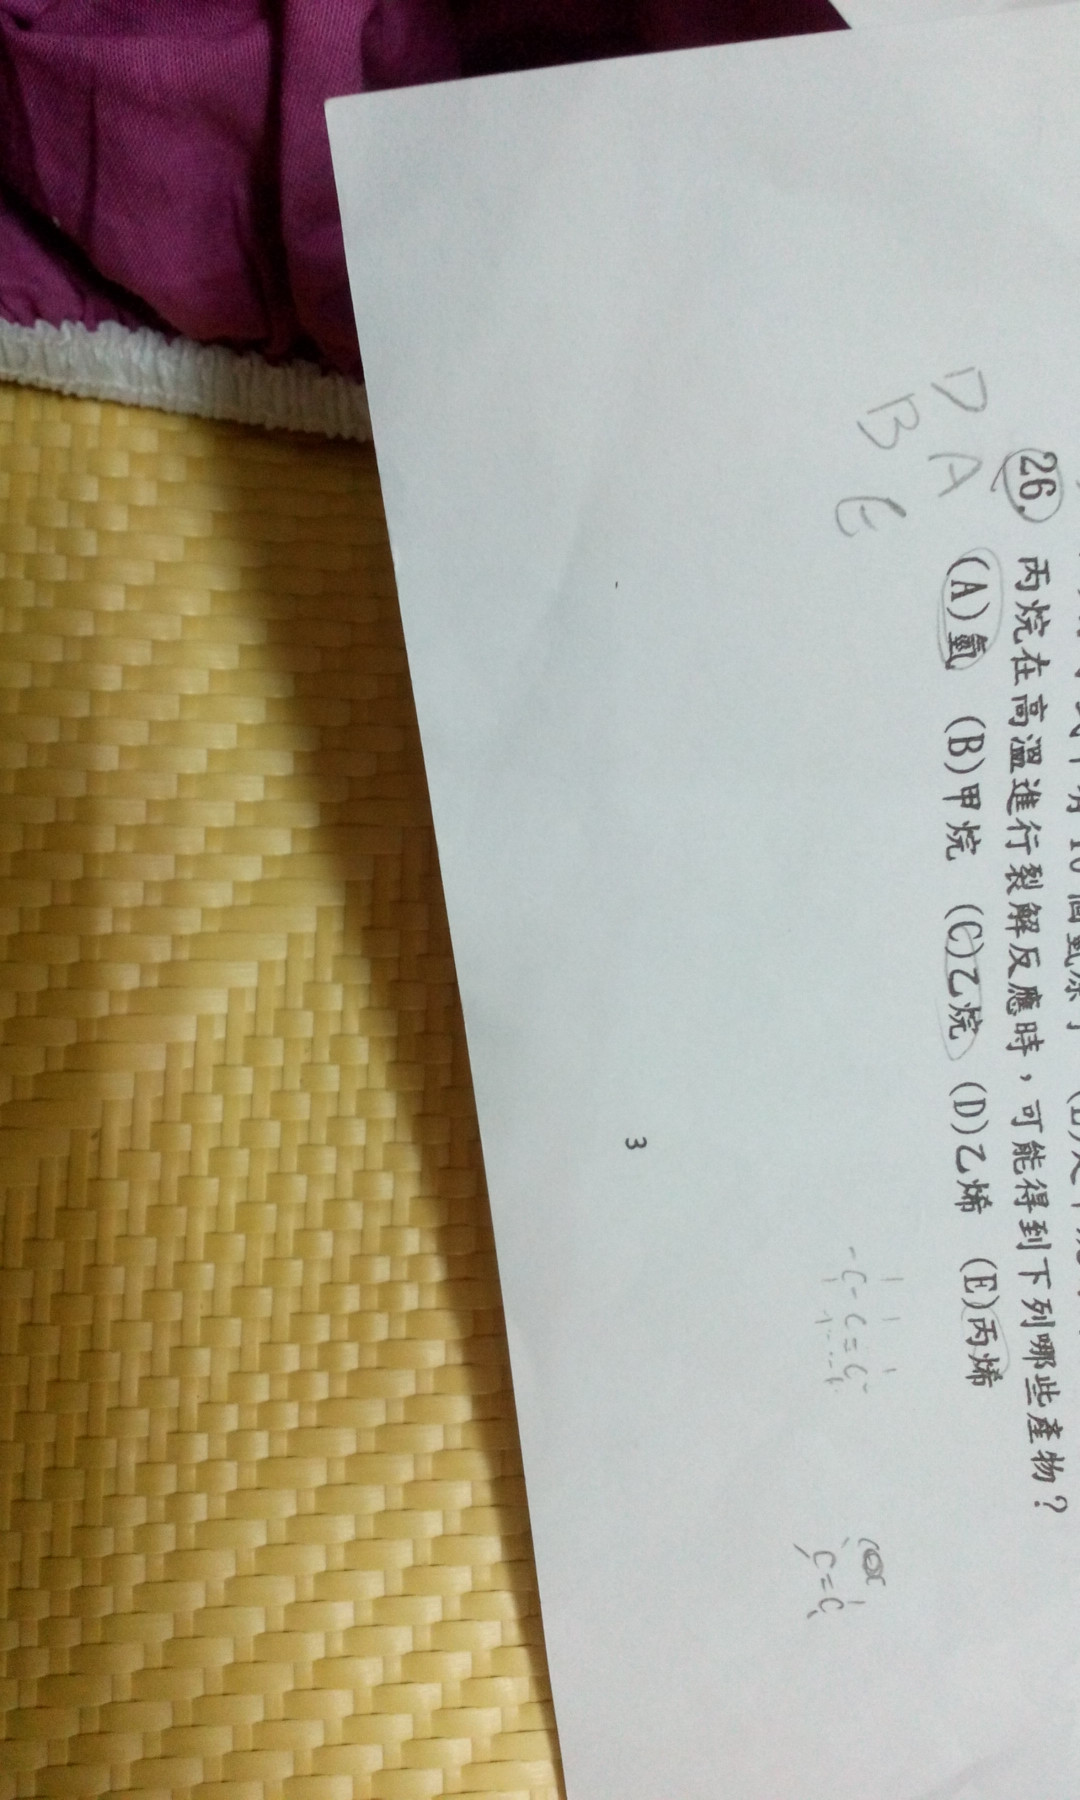 26. 丙烷在高溫進行裂解反應時，可能得到下列哪些產物？
(A)氫 (B)甲烷 (C)乙烷 (D)乙烯 (E)丙烯
D A
B E
C=C
3